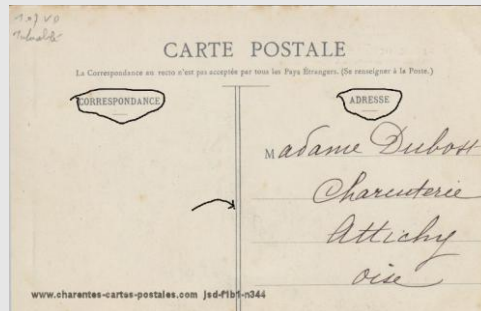 CARTE POSTALE
La Correspondance au recto n'est pas acceptée par tous les Pays Étrangers. (Se renseigner à la Poste.)
CORRESPONDANCE
ADRESSE
Madame Dubost
Charcuterie
Attichy
Oise
www.charentes-cartes-postales.com jsd-f1b1-n344